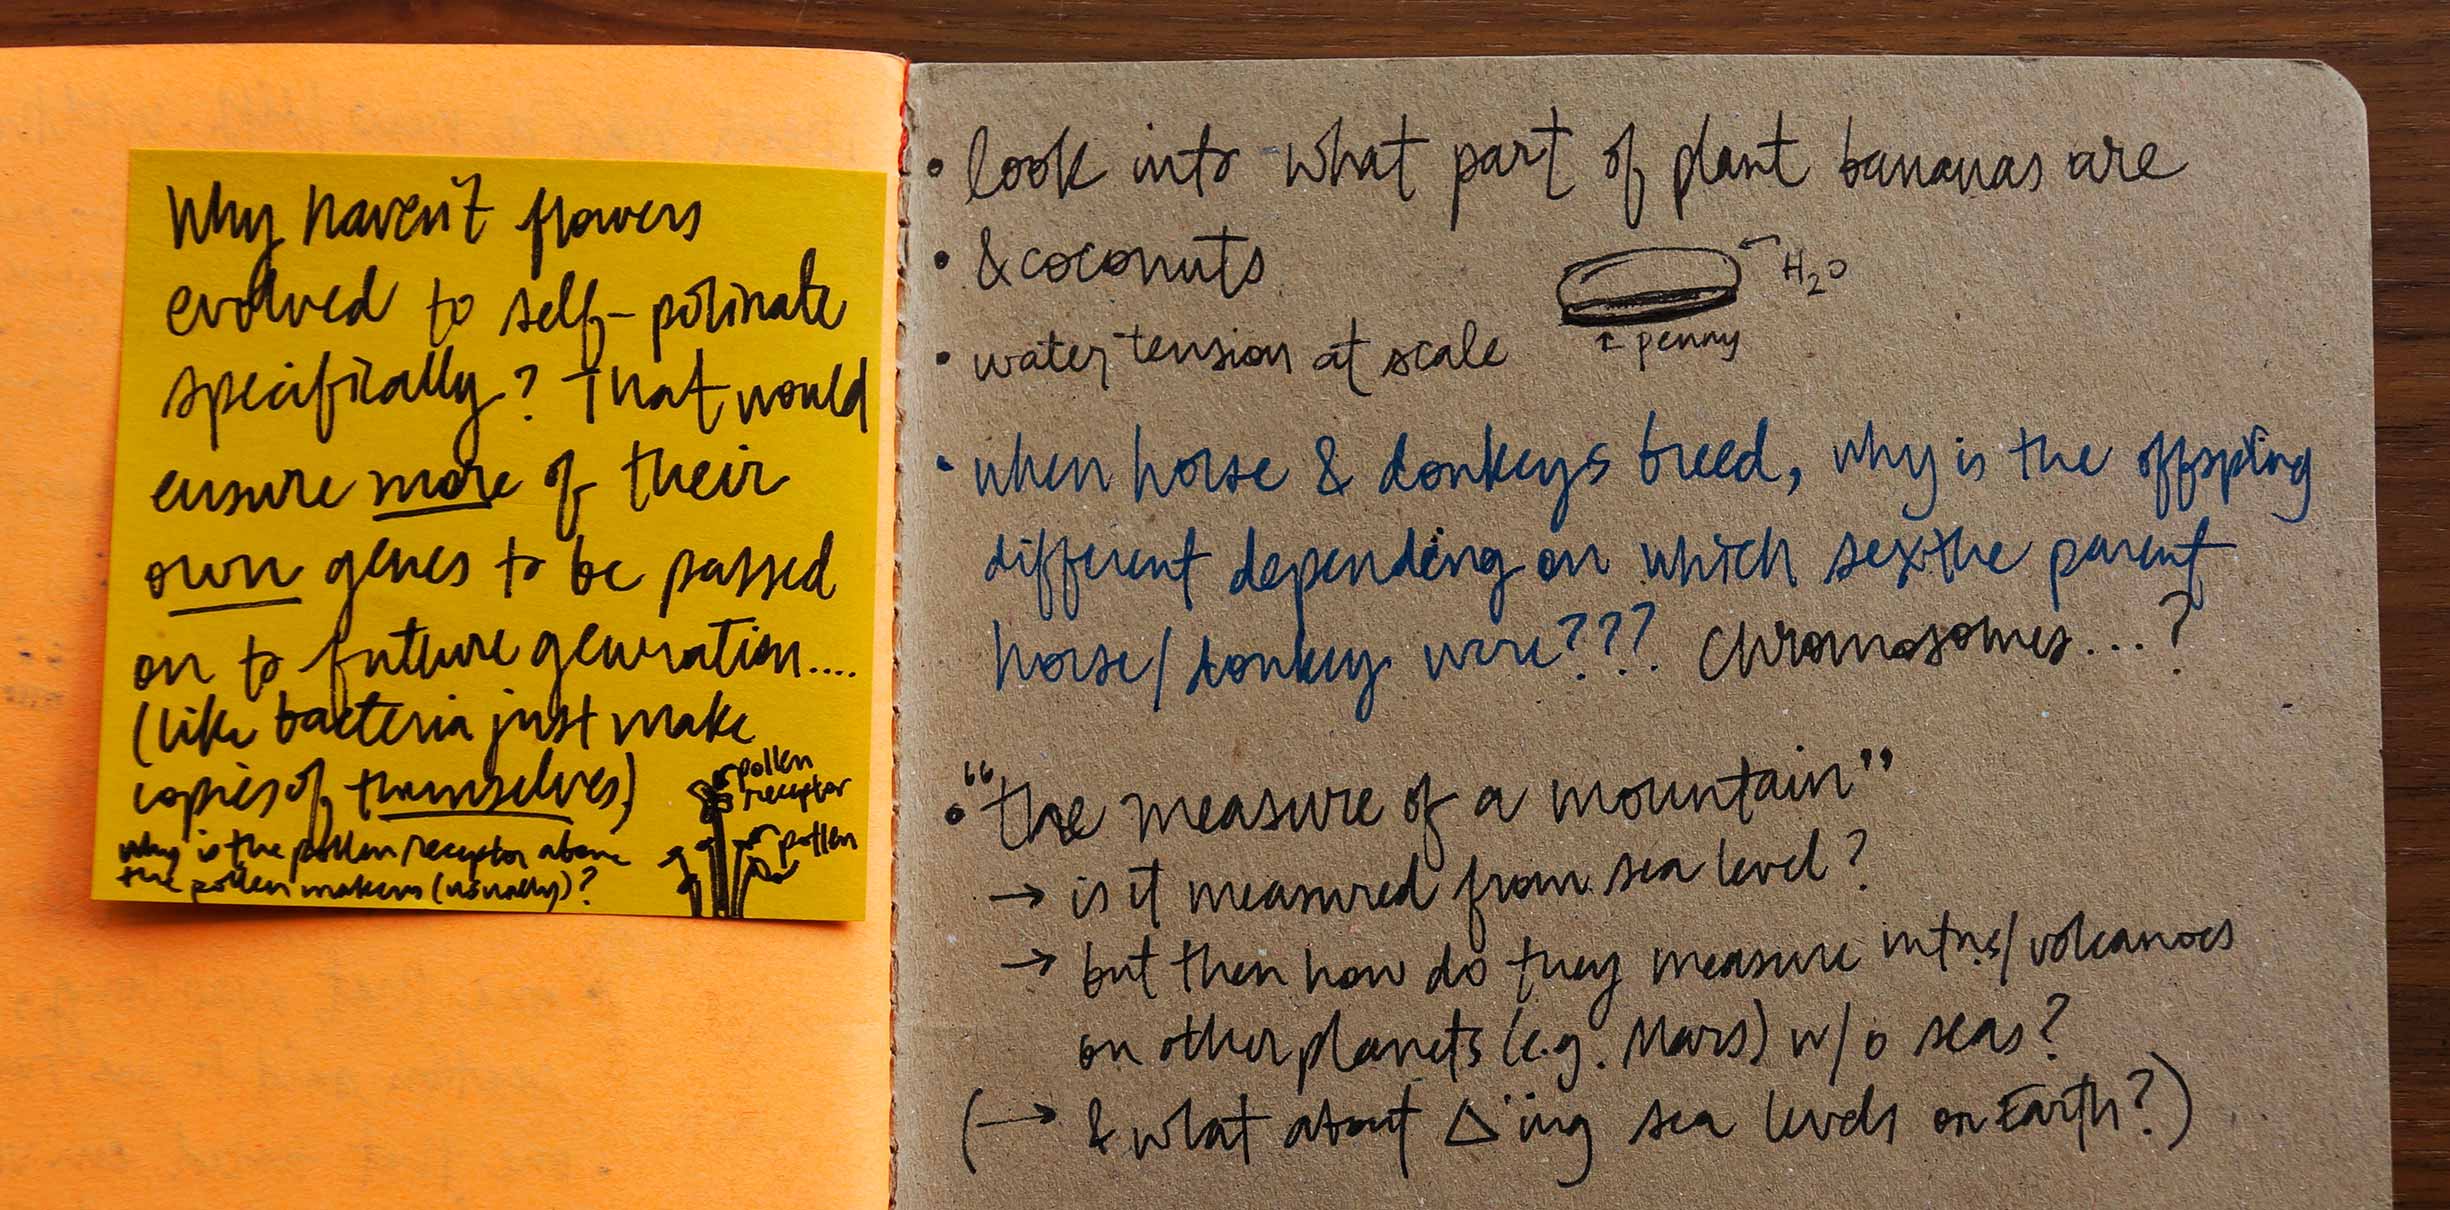 Why haven't flowers
evolved to self-polinate
specifically? That would
ensure more of their
own genes to be passed
on to future generation....
(like bacteria just make
copies of themselves)
why is the pollen receptor above
the pollen makers (usually)?
pollen
receptor
pollen
• look into what part of plant bananas are
• & coconuts
H₂O
• water tension at scale
penny
• when horse & donkeys breed, why is the offspring
different depending on which sex the parent
horse/donkey were??? Chromosomes...?
• "the measure of a mountain"
→ is it measured from sea level?
→ but then how do they measure mtns/volcanoes
on other planets (e.g. Mars) w/o seas?
(→ & what about Δ'ing sea levels on Earth?)